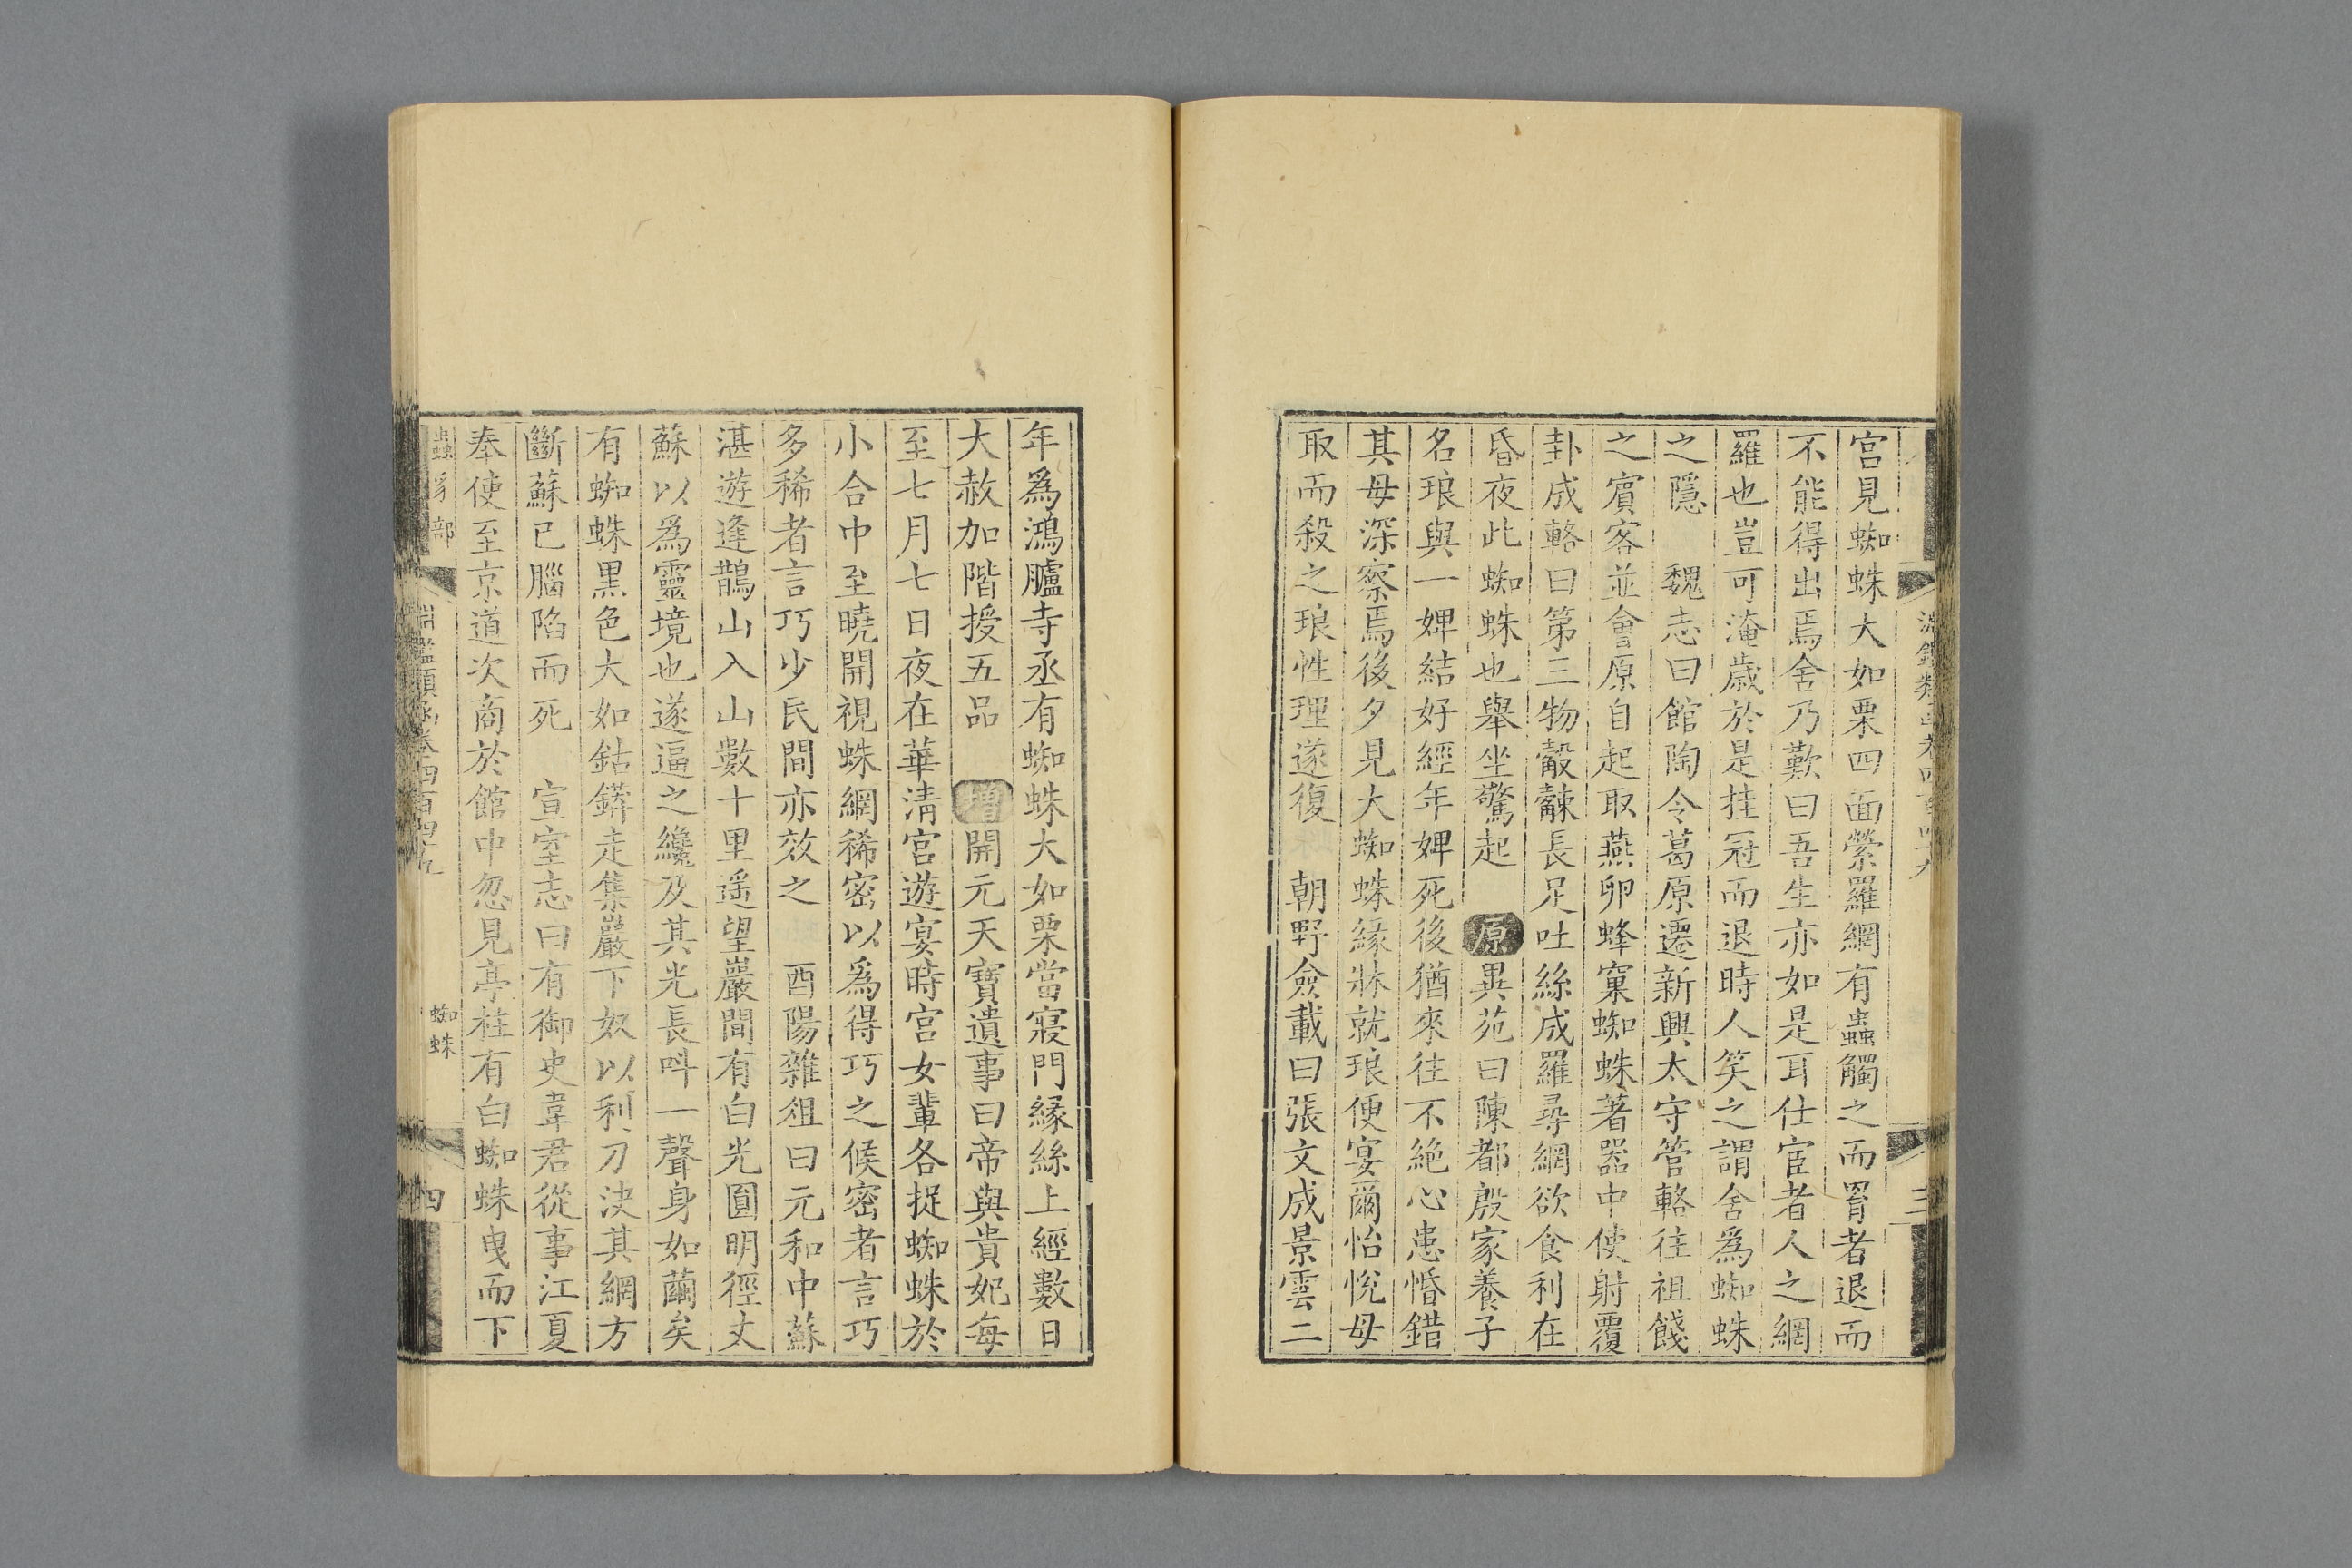 宮見蜘蛛大如栗四面縈羅網有蟲觸之而罥者退而
不能得出焉舍乃歎曰吾生亦如是耳仕宦者人之網
羅也豈可淹歲於是挂冠而退時人笑之謂舍爲蜘蛛
之隱　魏志曰館陶令葛原遷新興太守管輅往祖餞
之賓客並會原自起取燕卵蜂窠蜘蛛著器中使射覆
卦成輅曰第三物觳觫長足吐絲成羅尋網欲食利在
昏夜此蜘蛛也舉坐驚起　原異苑曰陳都殷家養子
名琅與一婢結好經年婢死後猶來往不絕心患惛錯
其母深察焉後夕見大蜘蛛緣牀就琅便宴爾怡悅母
取而殺之琅性理遂復　朝野僉載曰張文成景雲二
年爲鴻臚寺丞有蜘蛛大如栗當寢門緣絲上經數日
大赦加階授五品　增開元天寶遺事曰帝與貴妃每
至七月七日夜在華清宮遊宴時宮女輩各捉蜘蛛於
小合中至曉開視蛛網稀密以爲得巧之候密者言巧
多稀者言巧少民間亦效之　酉陽雜俎曰元和中蘇
湛遊逢鵲山入山數十里遥望巖間有白光圓明徑丈
蘇以爲靈境也遂逼之纔及其光長呌一聲身如繭矣
有蜘蛛黑色大如鈷鉧走集巖下奴以利刀決其網方
斷蘇已腦陷而死　宣室志曰有御史韋君從事江夏
奉使至京道次商於館中忽見亭柱有白蜘蛛曳而下
蟲豸部　淵鑑類函卷四百四十九　蜘蛛　四